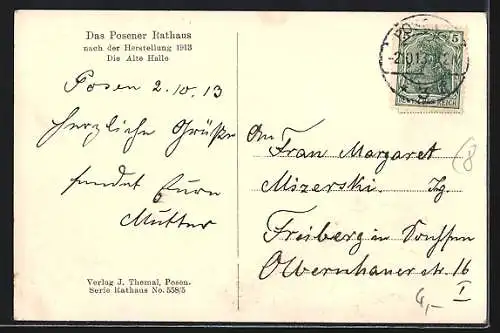 Das Posener Rathaus
nach der Herstellung 1913
Die Alte Halle
Posen 2.10.13
Herzliche Grüße
sendet Eure
Mutter
Verlag J. Themal, Posen.
Serie Rathaus No. 558/5
5
-2.10.13
An
Frau Margaret
Mizerski. Ing.
Freiberg in Sachsen
Olbernhauer str. 16
I
8
4,-